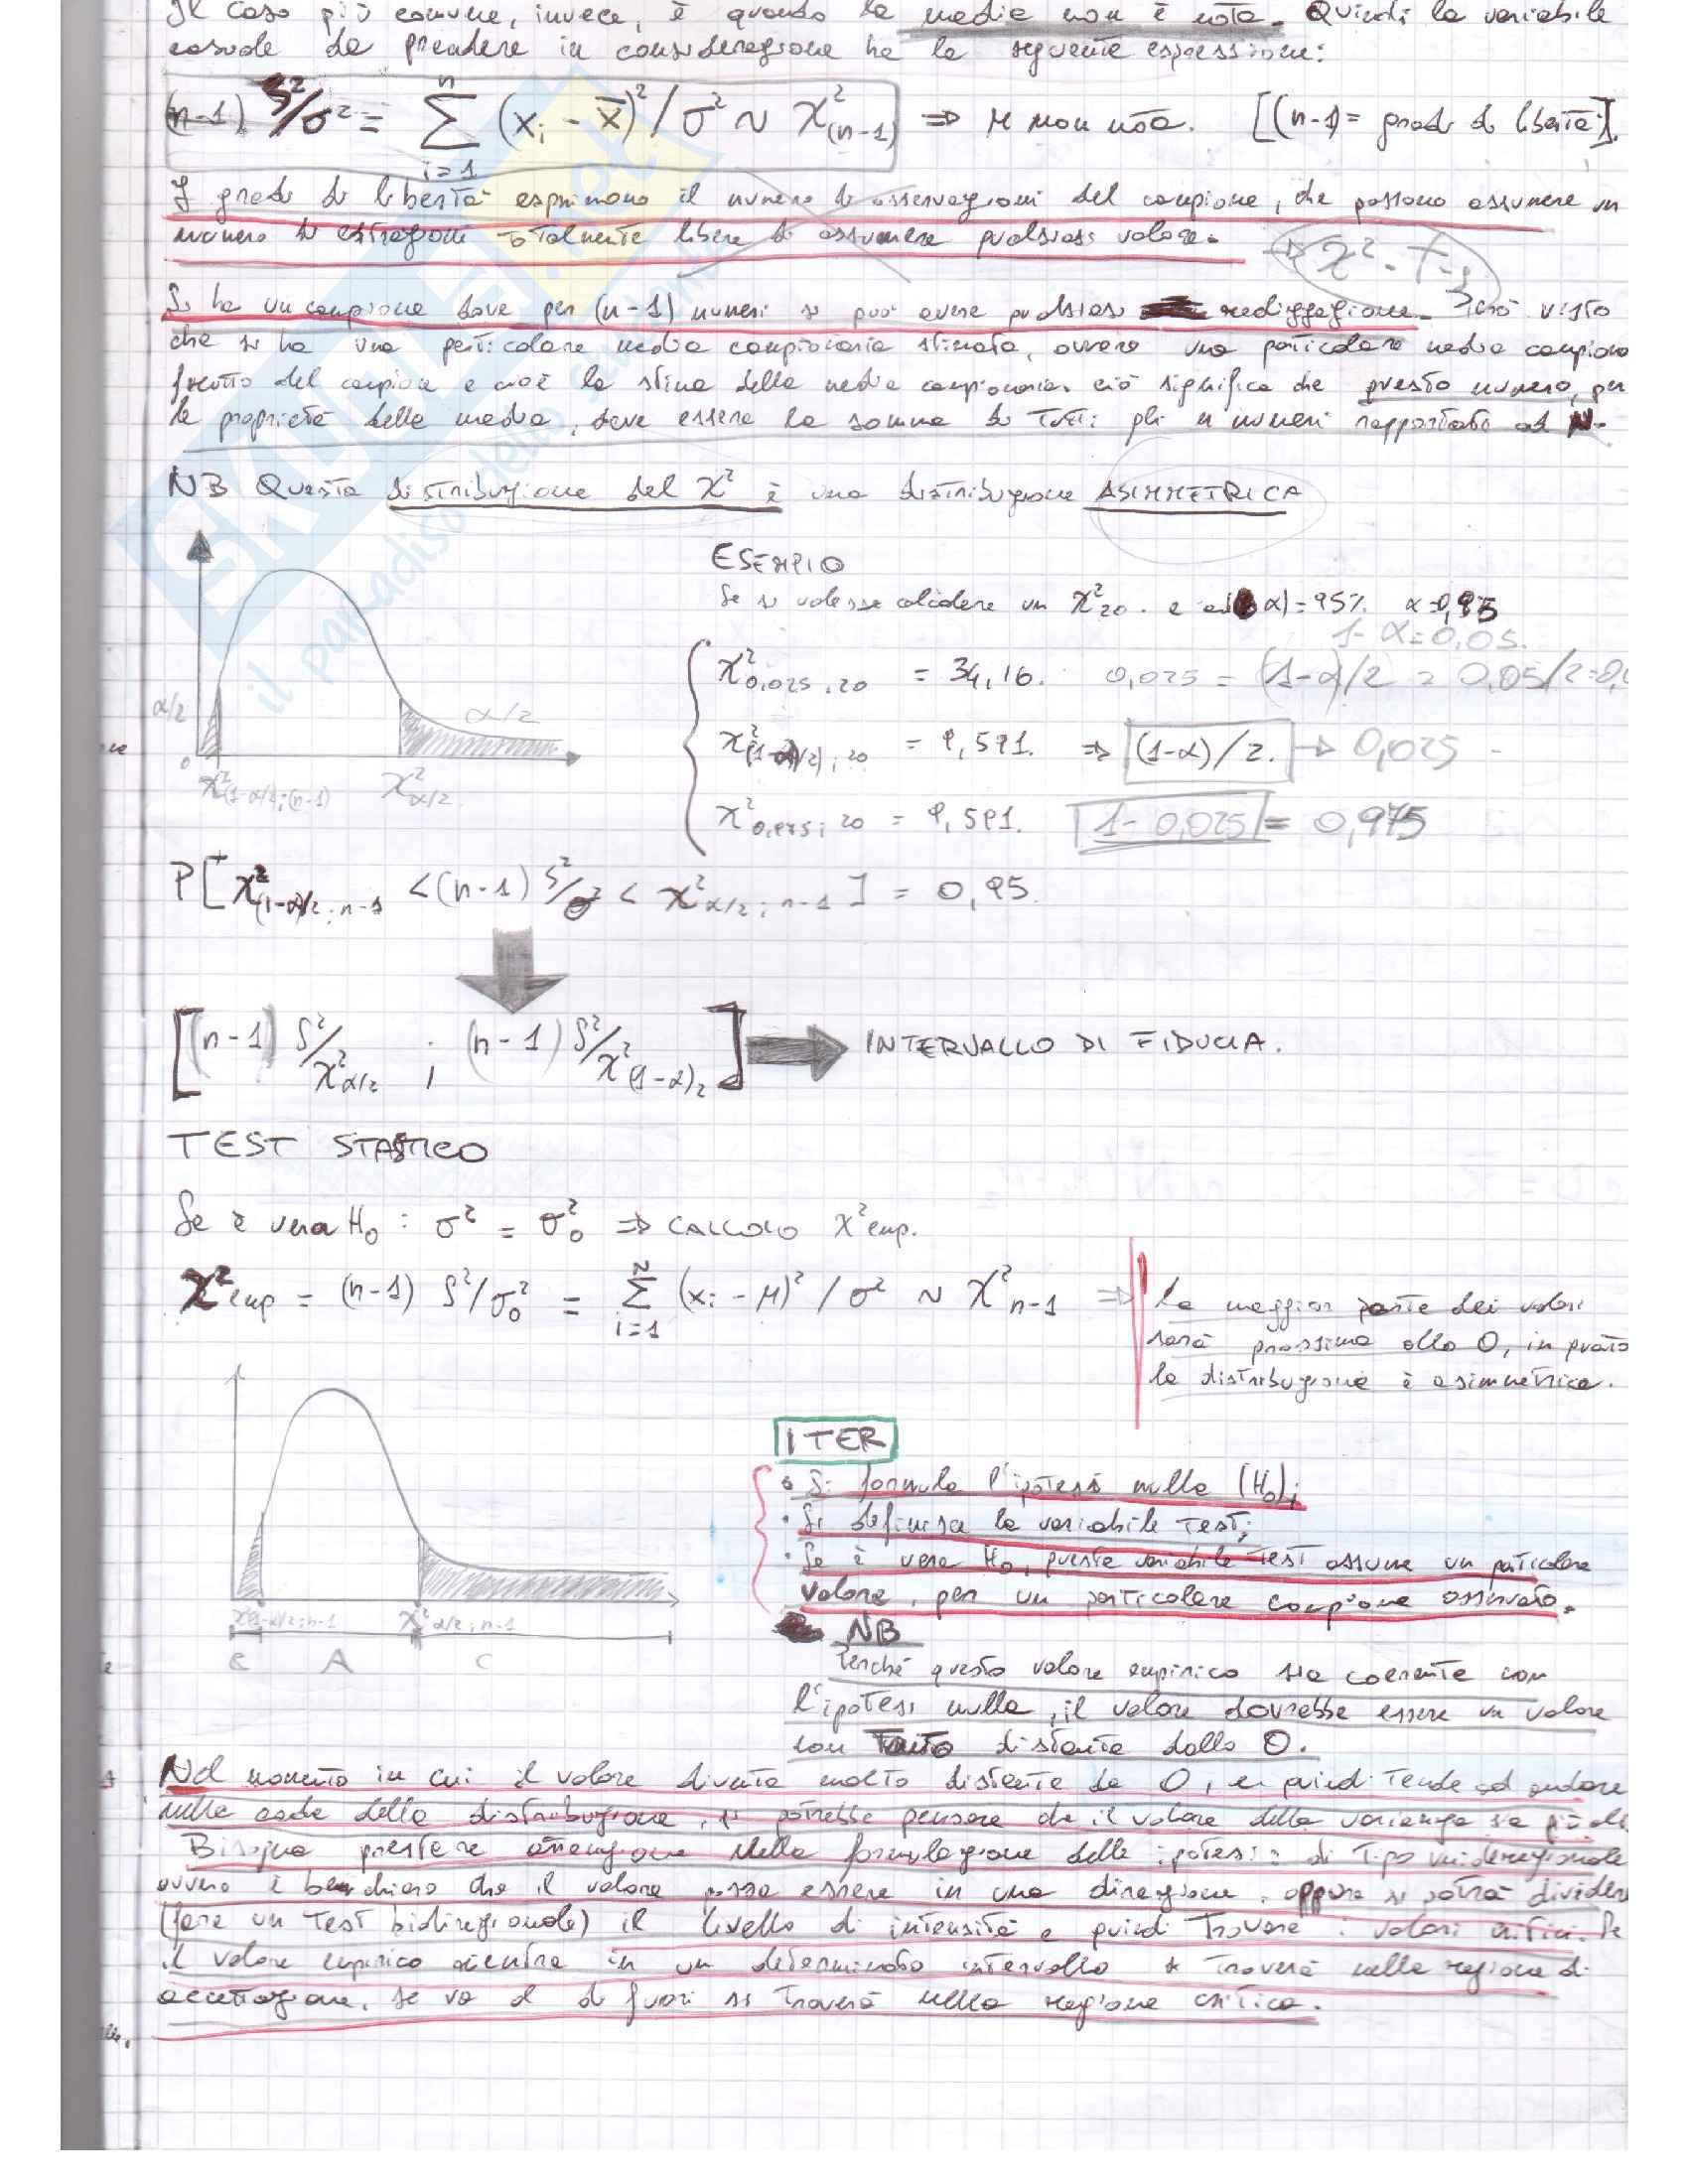 Il caso più comune, invece, è quando la media non è nota. Quindi la variabile
casuale da prendere in considerazione ha la seguente espressione:
(n-1) S²/σ² = Σ (xᵢ - x̄)²/σ² ~ χ²(n-1) ⇒ μ non nota. [(n-1) = gradi di libertà].
n
i=1
I gradi di libertà esprimono il numero di osservazioni del campione, che possono assumere un
numero di estrazioni totalmente libere di assumere qualsiasi valore.
Si ha un campione dove per (n-1) numeri si può avere qualsiasi realizzazione. Però visto
che si ha una particolare media campionaria stimata, ovvero una particolare media campiona
frutto del campione e cioè la stima della media campionaria ciò significa che questo numero, per
la proprietà della media, deve essere la somma di tutti gli n numeri rapportati ad N.
NB Questa distribuzione del χ² è una distribuzione ASIMMETRICA
ESEMPIO
Se si volesse calcolare un χ²20. α)=95%
1-α=0,05.
χ²0,025,20 = 34,16. 0,025 = (1-α)/2 = 0,05/2=0,0
α/2 α/2
= 9,591. ⇒ (1-α)/2. → 0,025
0
χ²(1-α/2;(n-1) χ²α/2
χ²0,975; 20 = 9,591. 1-0,025 = 0,975
P[χ²(1-α)/2; n-1 < (n-1) S²/σ² < χ²α/2; n-1] = 0,95.
[(n-1) S²/χ²α/2 ; (n-1) S²/χ²(1-α)2] INTERVALLO DI FIDUCIA.
TEST STASTICO
Se è vera H₀ : σ² = σ²₀ ⇒ CALCOLO χ²emp.
χ²emp = (n-1) S²/σ₀² = Σ (xᵢ - μ)² / σ² ~ χ²n-1 ⇒
n
i=1
la maggior parte dei valori
sarà prossima allo 0, in quato
la distribuzione è asimmetrica.
ITER
• Si formula l'ipotesi nulla (H₀);
• Si definisce la variabile test;
• Se è vera H₀, questa variabile test assume un paticolare
valore, per un particolare campione osservato.
χ²1-α/2;n-1 χ²α/2;n-1
NB
C A C
Perché questo valore empirico sia coerente con
l'ipotesi nulla, il valore dovrebbe essere un valore
non tanto distante dallo 0.
Nel momento in cui il valore diventa molto distante da 0, e quindi tende ad andare
nelle code della distribuzione, si potrebbe pensare che il valore della varianza sia
Bisogna prestare attenzione nella formulazione delle ipotesi: di tipo unidirezionale
ovvero è ben chiaro che il valore possa essere in una direzione, oppure si potrà divider
(fare un test bidirezionale) il livello di intensità e quindi trovare i valori critici. Se
il valore empirico rientra in un determinato intervallo si troverà nella regione di
accettazione, se va al di fuori si troverà nella regione critica.